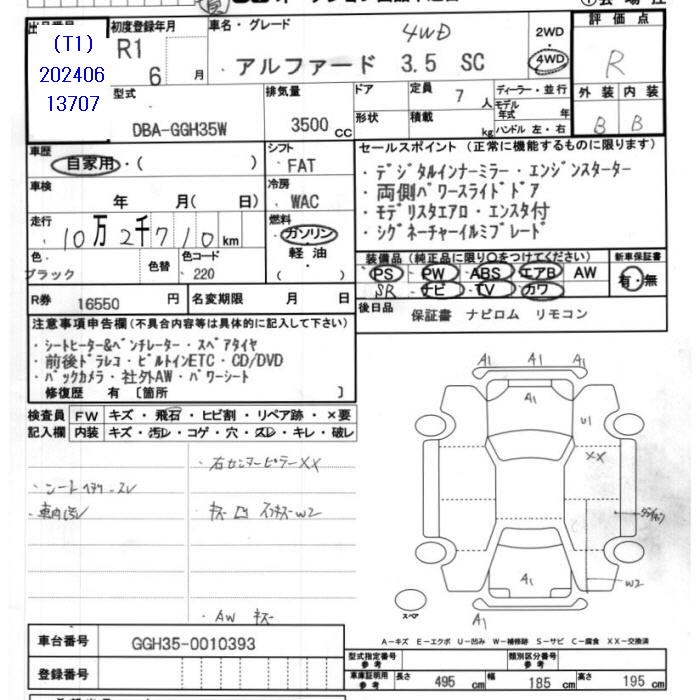 (T1)
202406
13707
初度登録年月
R1
6 月
車名・グレード
4WD
アルファード 3.5 SC
2WD
4WD
評価点
R
型式
DBA-GGH35W
排気量
3500 CC
ドア
形状
定員 7 人
積載 kg
ディーラー・並行
モデル年式 年
ハンドル 左・右
外装 内装
B B
車歴
自家用・( )
シフト
FAT
車検
年 月( 日)
冷房
WAC
走行
10万2千710 km
燃料
ガソリン
軽油
( )
色
ブラック
色替
色コード
220
R券 16550 円
名変期限 月 日
セールスポイント(正常に機能するものに限ります)
・デジタルインナーミラー・エンジンスターター
・両側パワースライドドア
・モデリスタエアロ・エンスタ付
・シグネーチャーイルミブレード
装備品(純正品に限り○をつけてください)
PS PW ABS エアB AW
SR ナビ TV カワ
新車保証書
有・無
後日品
保証書 ナビロム リモコン
注意事項申告欄(不具合内容等は具体的に記入して下さい)
・シートヒーター&ベンチレーター・スペアタイヤ
・前後ドラレコ・ビルトインETC・CD/DVD
・バックカメラ・社外AW・パワーシート
修復歴 有 〔箇所 〕
検査員記入欄
FW キズ・飛石・ヒビ割・リペア跡・×要
内装 キズ・汚レ・コゲ・穴・スレ・キレ・破レ
・右センターピラーXX
・車内汚レ
・AW キズ
A1 A1 A1
A1
U1
XX
W2
A1
A1
スペア
A-キズ E-エクボ U-凹み W-補修跡 S-サビ C-腐食 XX-交換済
車台番号 GGH35-0010393
登録番号
型式指定番号
参考
類別区分番号
参考
車庫証明用
参考
長さ 495 cm
幅 185 cm
高さ 195 cm